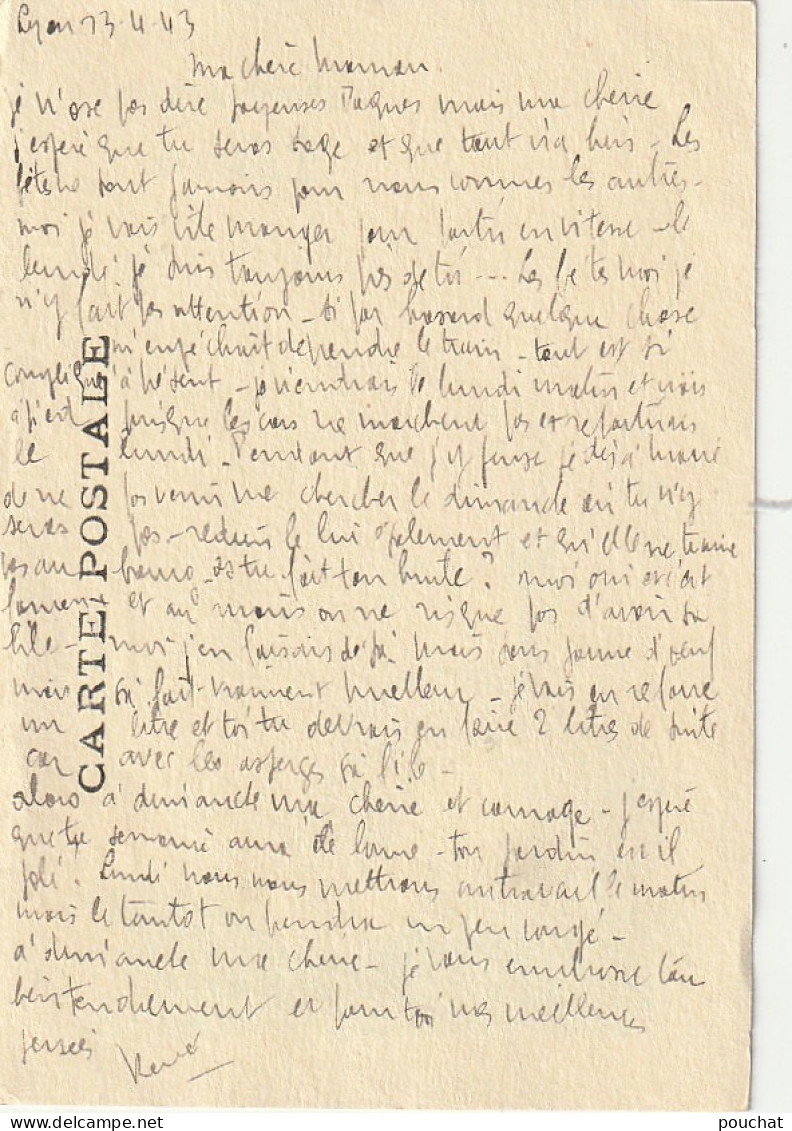 Lyon 23-4-43
Ma chère Maman.
je n'ose pas dire joyeuses Pâques mais ma chérie
j'espère que tu seras sage et que tout ira bien - Les
fêtes ne sont jamais pour nous comme les autres -
moi je vais vite manger pour partir en vitesse - le
lundi je suis toujours Les fêtes moi je
n'y fait pas attention - si par hasard quelque chose
m'empêchait de prendre le train - tout est si
compliqué à présent - je viendrais le lundi matin et irais
à pied puisque les cars ne marchent pas et repartirais
le lundi - Pendant que j'y pense je dis à
de ne pas venir me chercher le dimanche où tu n'y
seras pas - redis le lui également et qu'elle ne traine
pas au - as tu fait ton huile ? moi oui
et au moins on ne risque pas d'avoir sa
bile - moi j'en faisais déjà mais sans jaune d'oeuf
mais ça fait vraiment meilleur - je vais en refaire
un litre et toi tu devrais en faire 2 litres de suite
car avec les asperges ça file -
alors à dimanche ma chérie et courage - j'espère
que ta semaine aura été bonne - ton jardin est il
joli ? Lundi nous nous mettrons au travail le matin
mais le tantot on prendra un peu congé -
à dimanche ma chérie - je vous embrasse tous
bien tendrement et pour toi mes meilleures
pensées René
CARTE POSTALE
pouchat